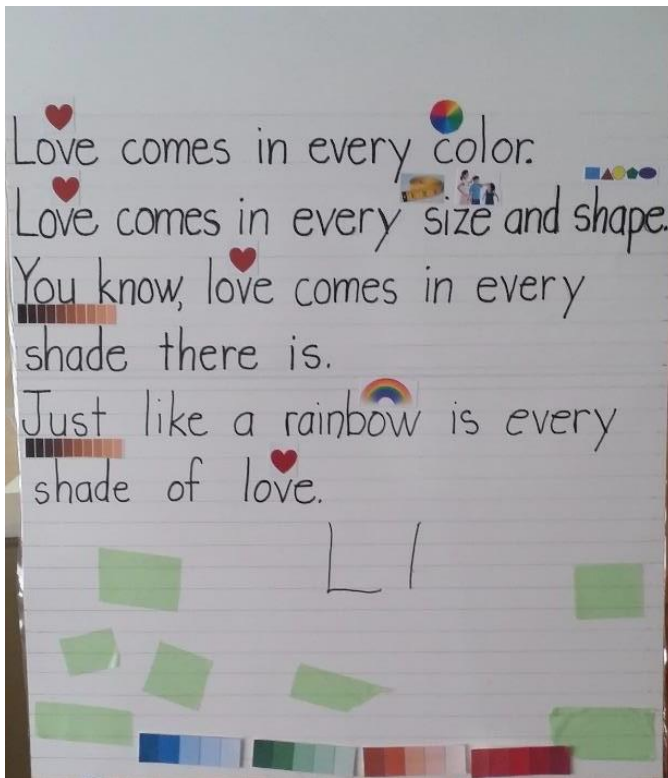 Love comes in every color.
Love comes in every size and shape.
You know, love comes in every
shade there is.
Just like a rainbow is every
shade of love.
Ll